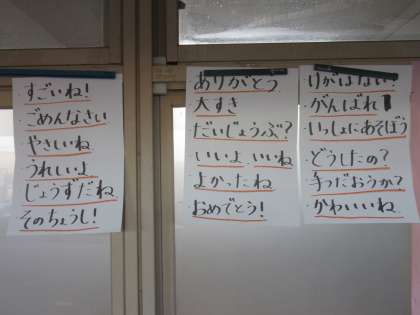 すごいね!
・ごめんなさい
・やさしいね
・うれしいよ
・じょうずだね
・そのちょうし!
ありがとう
・大すき
・だいじょうぶ?
・いいよ いいね
・よかったね
・おめでとう!
けがはない?
・がんばれ!
・いっしょにあそぼう
・どうしたの?
・手つだおうか?
・かわいいね